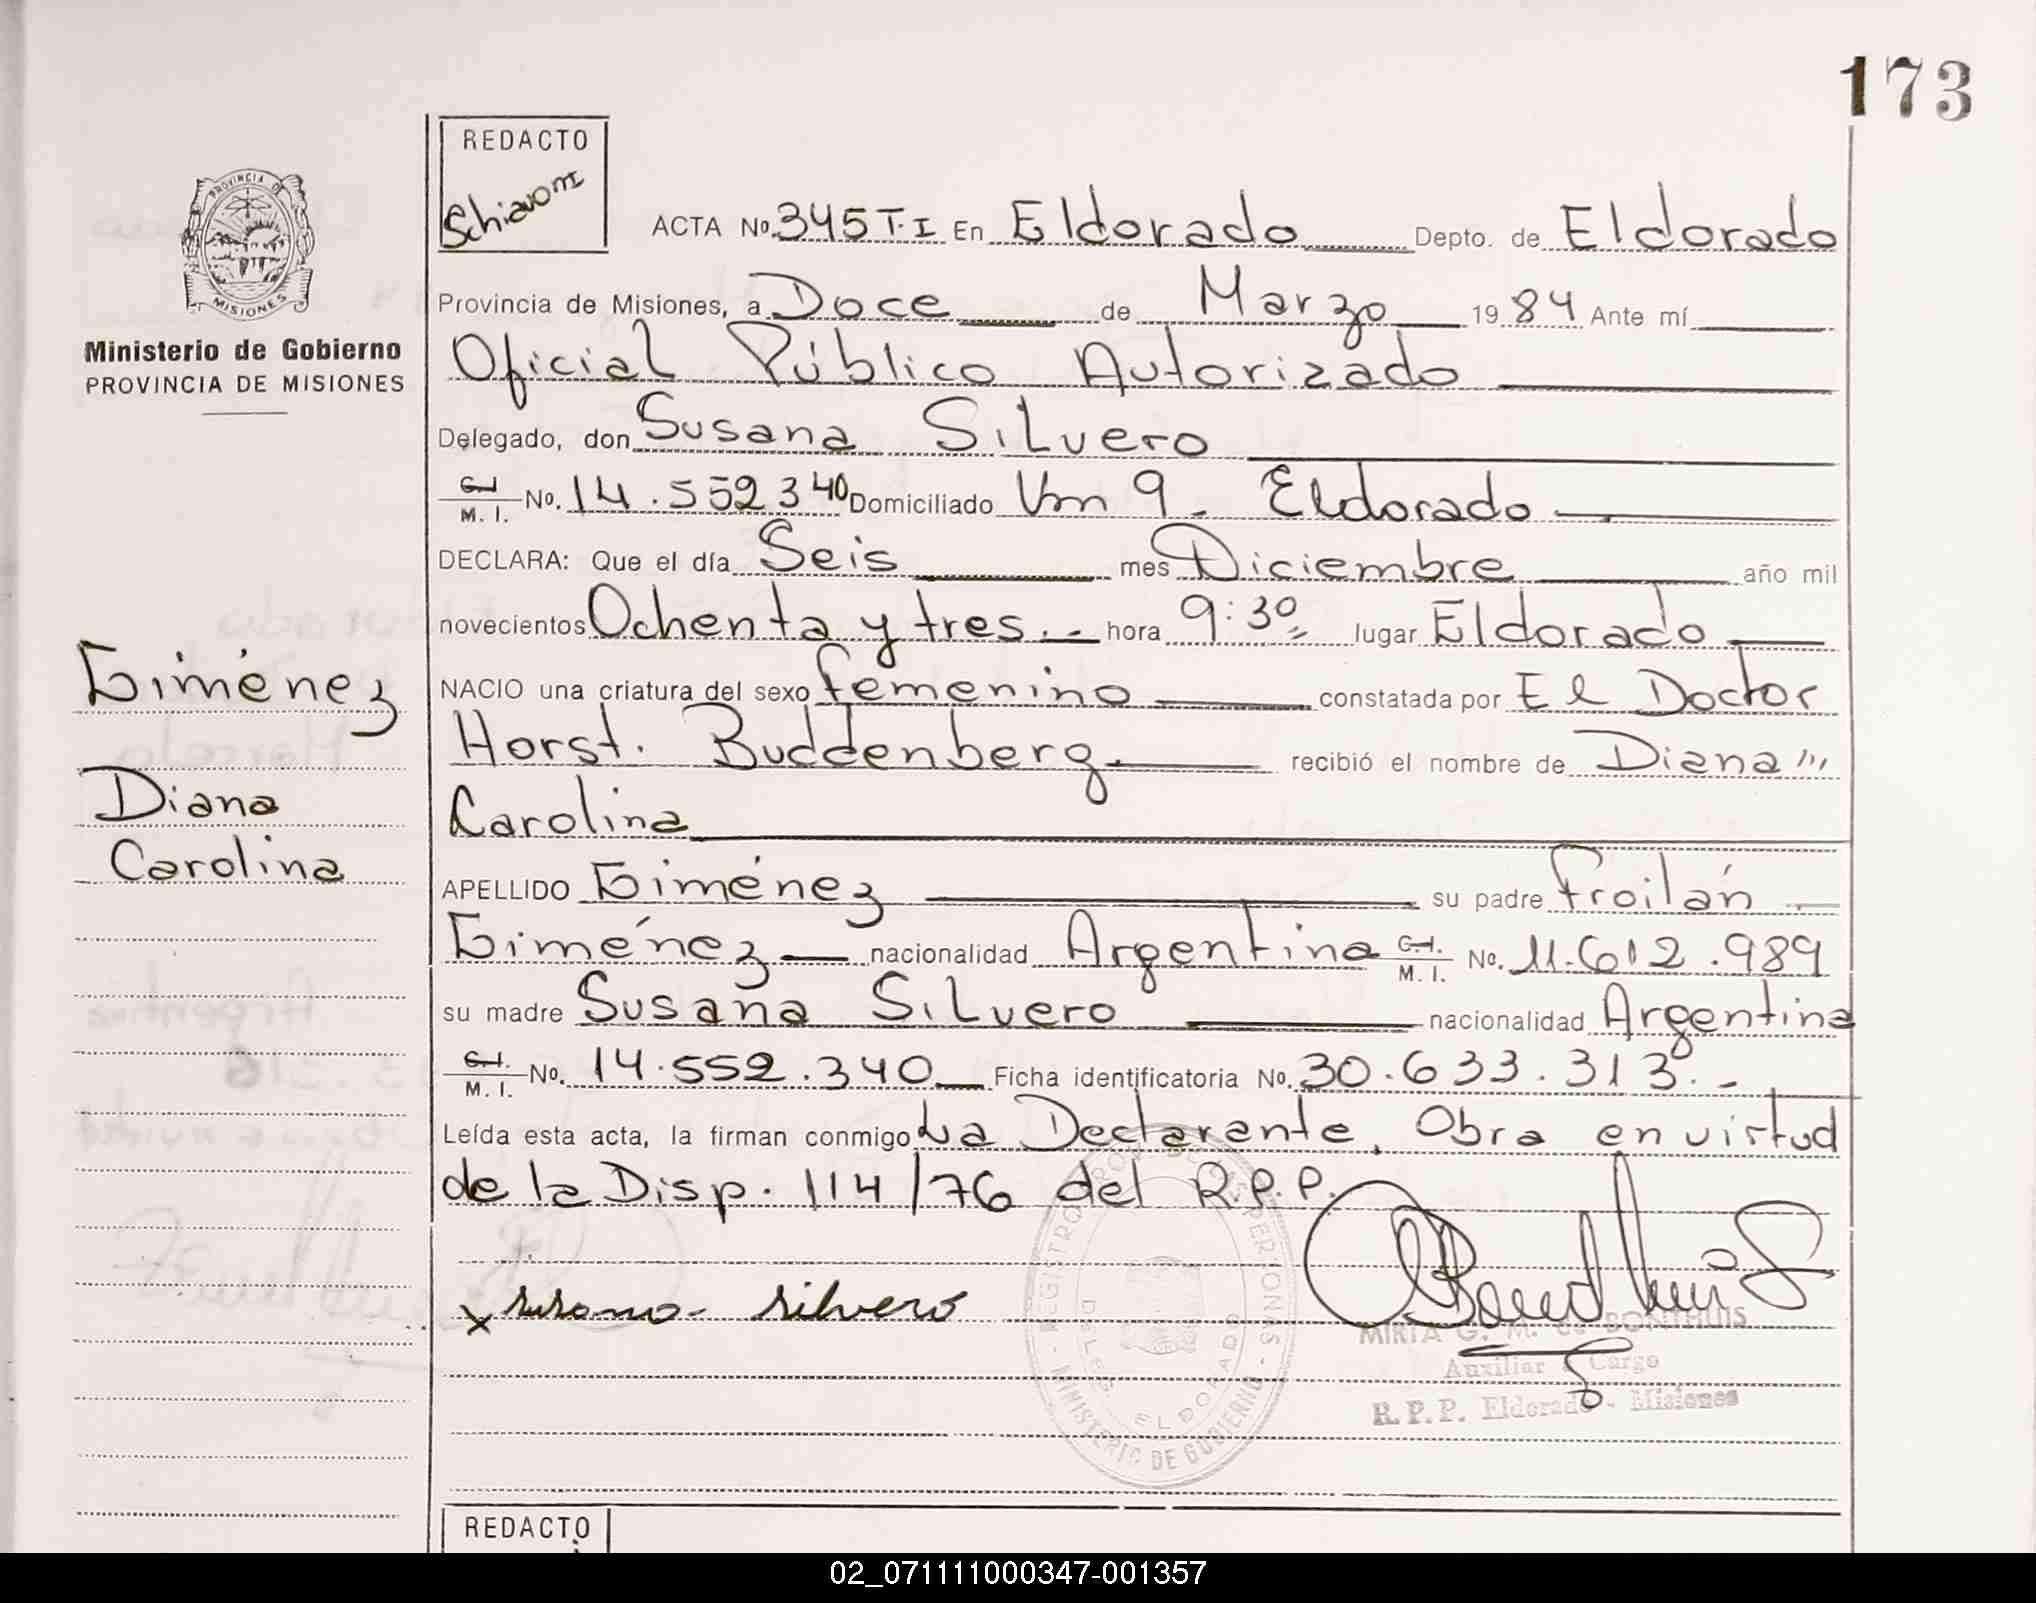 173
REDACTO
Schiavoni
PROVINCIA DE
MISIONES
Ministerio de Gobierno
PROVINCIA DE MISIONES
ACTA No. 345 T.I En Eldorado Depto. de Eldorado
Provincia de Misiones, a Doce de Marzo 1984 Ante mí
Oficial Público Autorizado
Delegado, don Susana Silvero
C.I. M. I. No. 14.552340 Domiciliado Km 9. Eldorado
DECLARA: Que el día Seis mes Diciembre año mil
novecientos Ochenta y tres.- hora 9:30 lugar Eldorado
Giménez
NACIO una criatura del sexo femenino constatada por El Doctor
Horst. Buddenberg recibió el nombre de Diana
Diana
Carolina
Carolina
APELLIDO Giménez su padre Froilán
Giménez nacionalidad Argentina C.I. M. I. No. 11.612.989
su madre Susana Silvero nacionalidad Argentina
C.I. M. I. No. 14.552.340 Ficha identificatoria No. 30.633.313.-
Leída esta acta, la firman conmigo La Declarante. Obra en virtud
de la Disp. 114/76 del R.P.P.
x susana silvero
MIRTA G. M. de BONTHUIS
Auxiliar a Cargo
R.P.P. Eldorado - Misiones
MINISTERIO DE GOBIERNO
ELDORADO
REDACTO
02_071111000347-001357